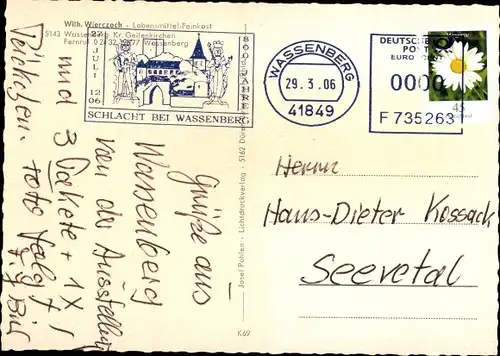 Wilh. Wierczoch - Lebensmittel-Feinkost
5143 Wassenberg Kr. Geilenkirchen
Fernruf 0 24 32 Wassenberg
27.
JULI
12
06
800 JAHRE
SCHLACHT BEI WASSENBERG
WASSENBERG
29.3.06
41849
DEUTSCHE
PO T
EURO
0000
F 735263
45
Grüße aus
Wassenberg
von der Ausstellung
und 3 Pakete + 1 X
rote
Josef Pohlen - Lichtdruckverlag - 5162 Düren
K69
Herrn
Hans-Dieter Kossack
Seevetal